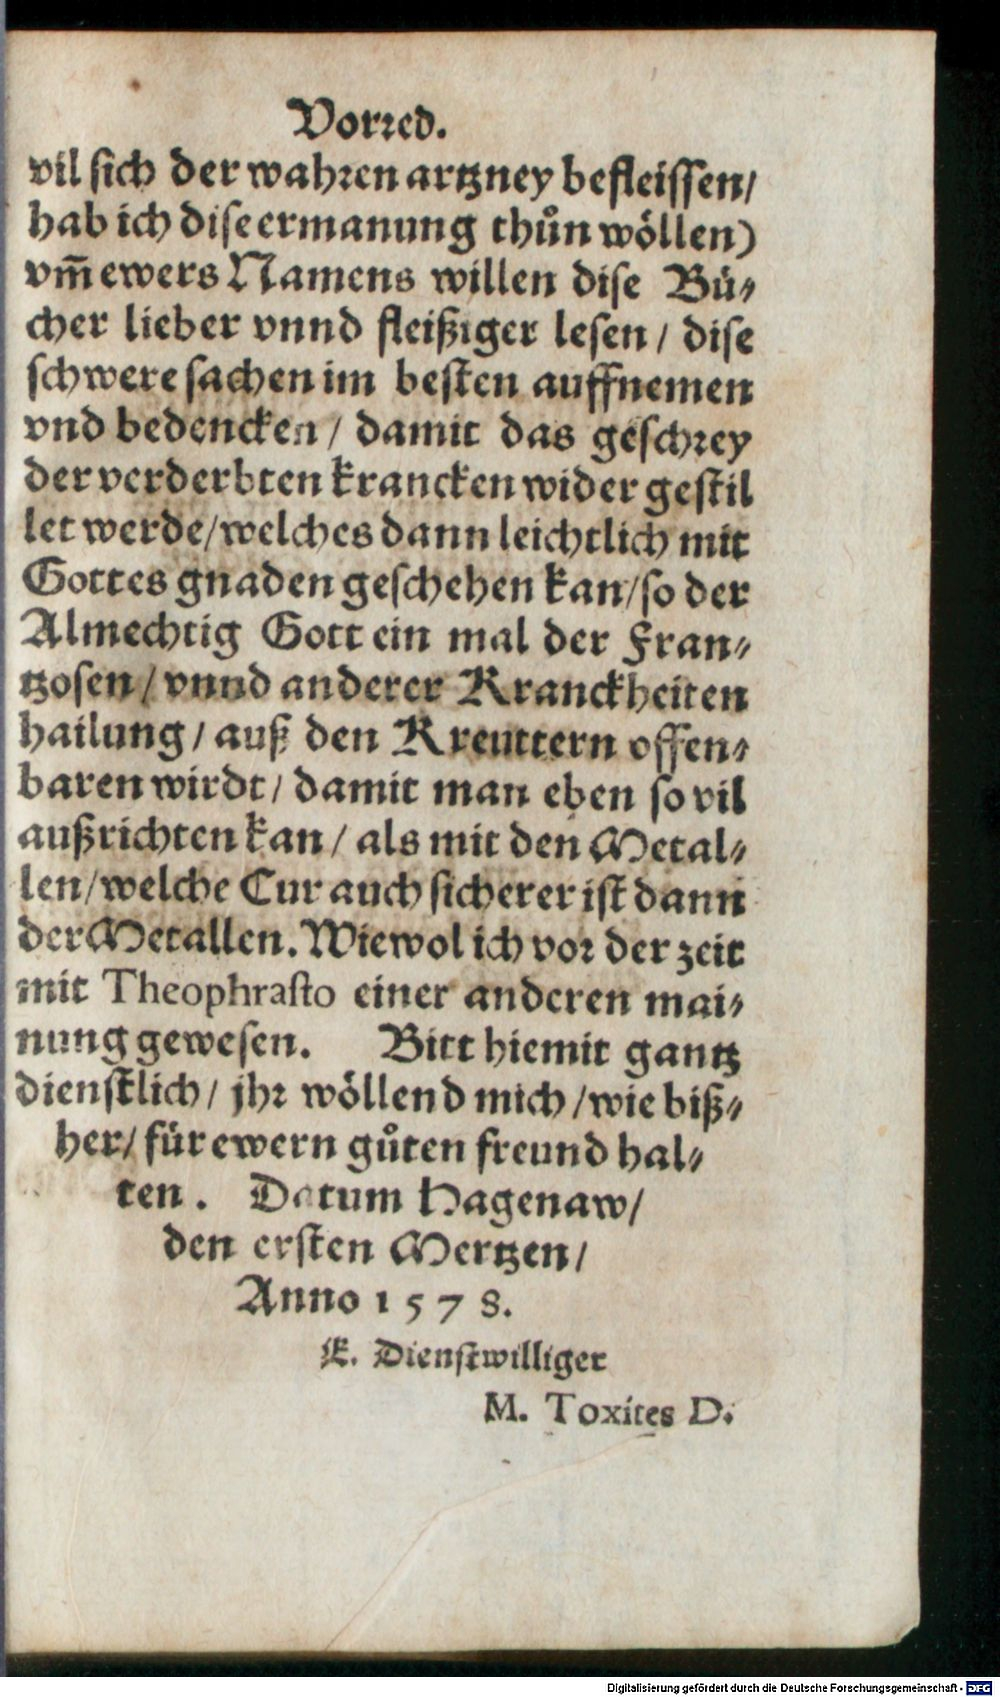 Vorred.
vil sich der wahren artzney befleissen/
hab ich dise ermanung thůn wöllen)
vm̃ ewers Namens willen dise Bü⸗
cher lieber vnnd fleißiger lesen / dise
schwere sachen im besten auffnemen
vnd bedencken / damit das geschrey
der verderbten krancken wider gestil
let werde/welches dann leichtlich mit
Gottes gnaden geschehen kan/so der
Almechtig Gott ein mal der Fran⸗
tzosen / vnnd anderer Kranckheiten
hailung / auß den Kreuttern offen⸗
baren wirdt / damit man eben so vil
außrichten kan / als mit den Metal⸗
len/welche Cur auch sicherer ist dann
der Metallen. Wiewol ich vor der zeit
mit Theophrasto einer anderen mai⸗
nung gewesen. Bitt hiemit gantz
dienstlich / jhr wöllend mich /wie biß⸗
her/ für ewern gůten freund hal⸗
ten. Datum Hagenaw/
den ersten Mertzen/
Anno 1578.
E. Dienstwilliger
M. Toxites D.
Digitalisierung gefördert durch die Deutsche Forschungsgemeinschaft - DFG